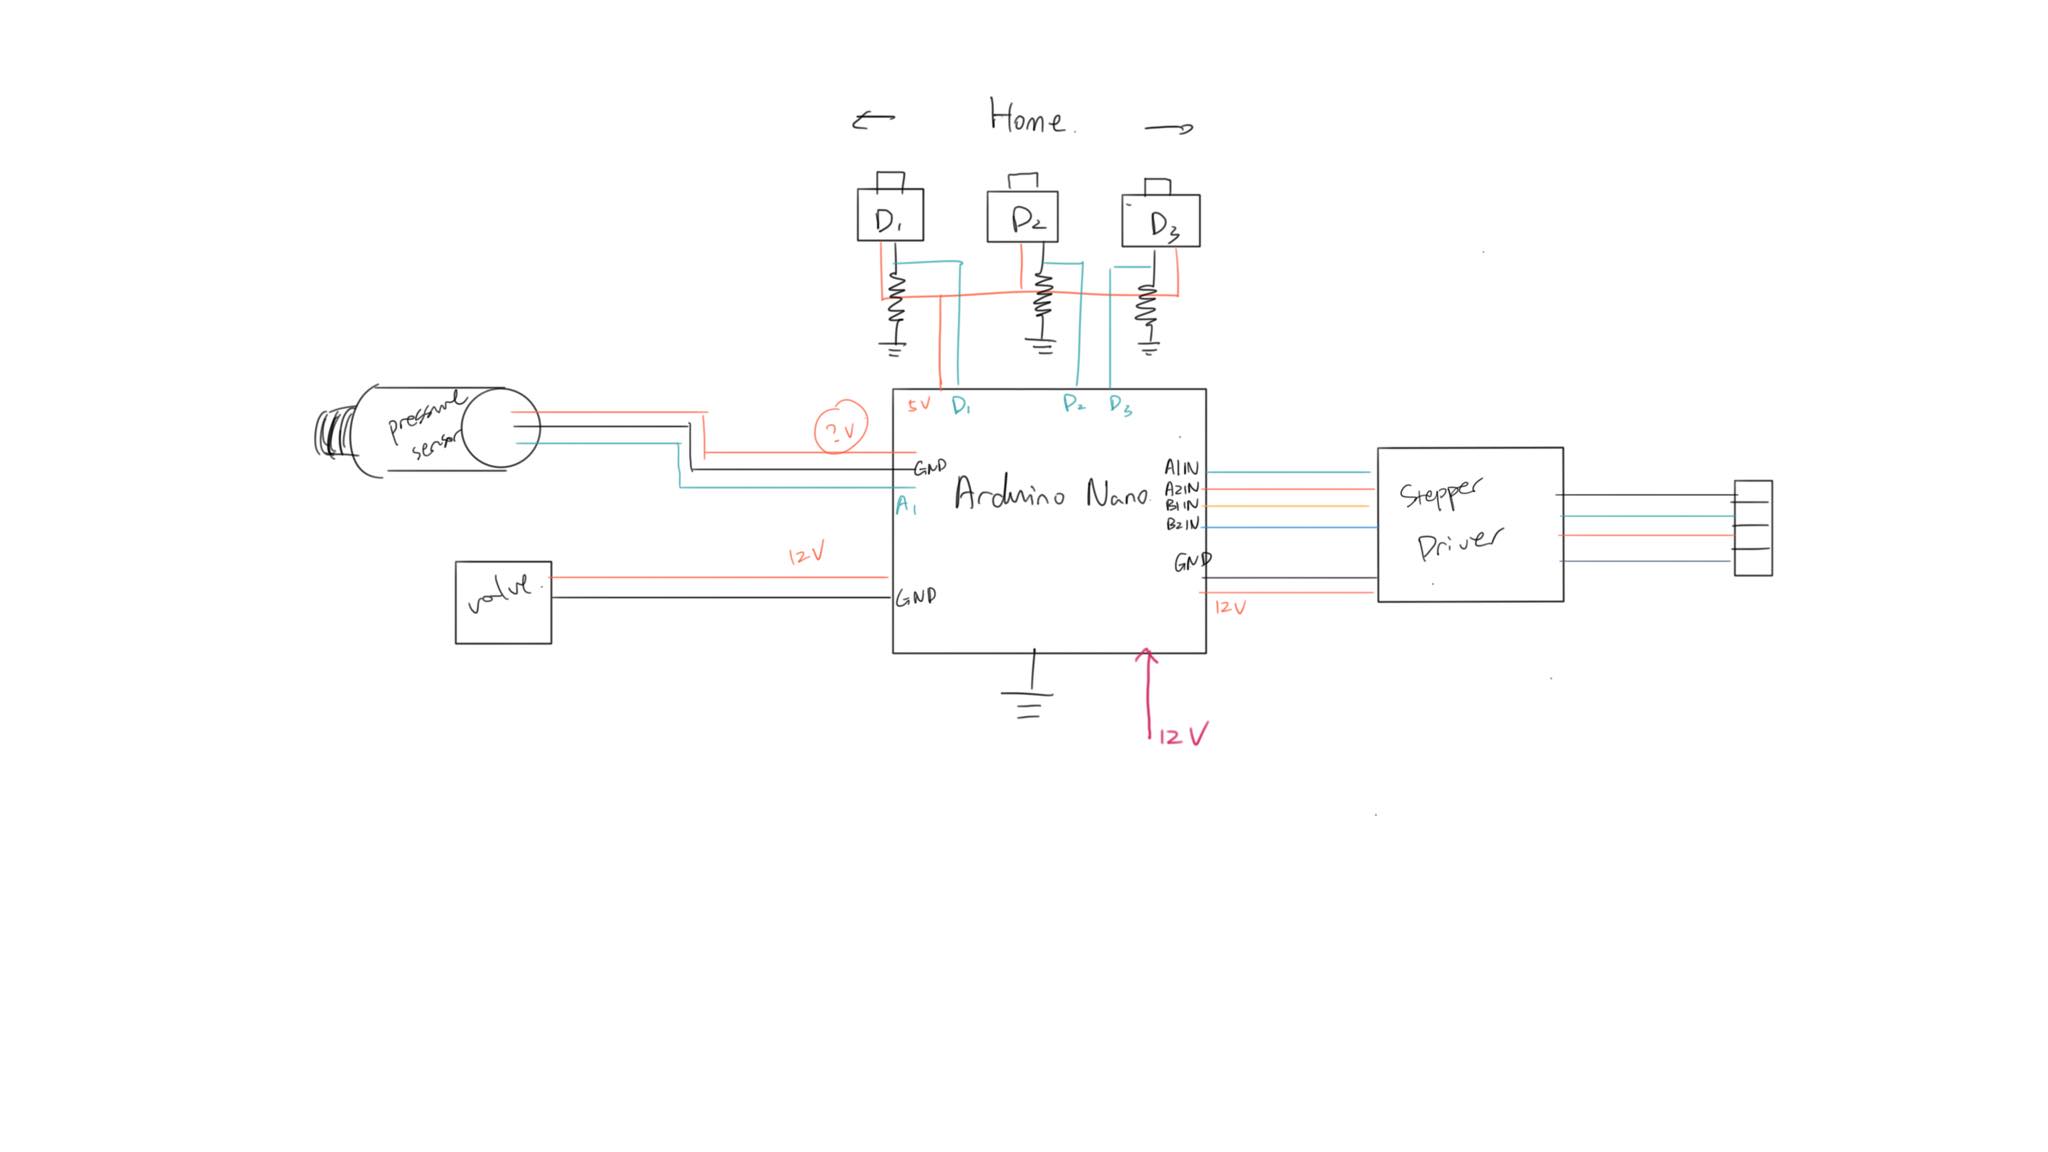 Home.
D1
D2
D3
5V
D1
D2
D3
pressure
sensor
?V
GND
A1
Arduino Nano.
A1IN
A2IN
B1IN
B2IN
GND
12V
Stepper
Driver
valve.
12V
GND
12V